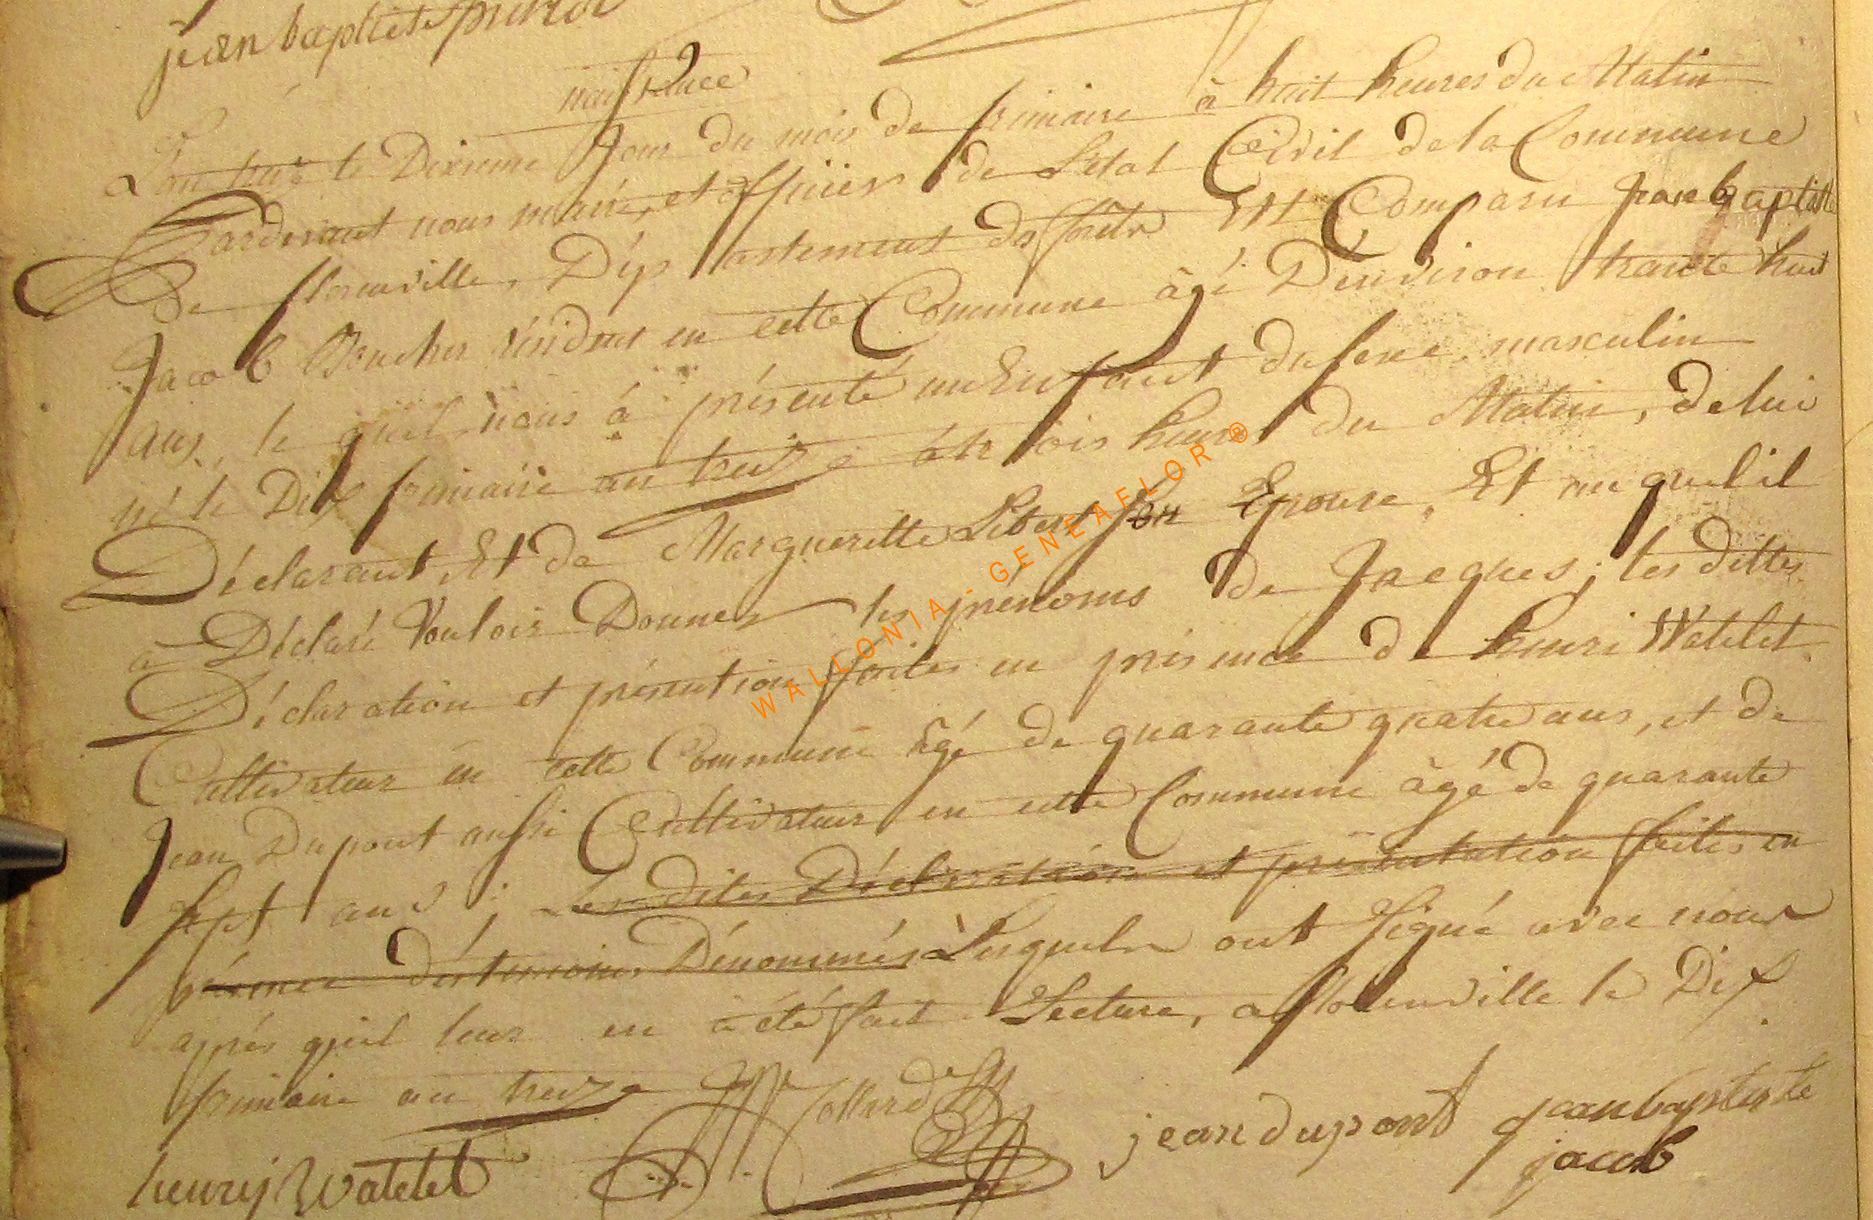 jean baptiste
naissance
L'an treize le Dixieme Jour du mois de frimaire à huit heures du Matin
Pardevant nous maire, et officier de L'Etat Civil de la Commune
De florenville, Département des forêts Est Comparu Jean baptiste
Jacob Boucher résidant en cette Commune âgé Denviron trante huit
ans, le quel nous à présenté un Enfant du sexe masculin
né le Dix frimaire an treize à trois heures du Matin, de lui
Déclarant Et de Margueritte Libert son Epouse, Et au quel il
à Déclaré Vouloir Donner les prénoms de Jacques; les dittes
Déclaration et présention faites en présence de henri Watelet
Cultivateur en cette Commune âgé de quarante quatre ans, et de
Jean Dupont aussi Cultivateur en cette Commune âgé de quarante
sept ans; Les dites Déclaration et présentation faites en
présence des témoins Dénommés Lesquels ont Signé avec nous
après quil leur en à été fait Lecture, a florenville le Dix
frimaire an treize Collard
jean dupont jean baptiste
henry Watelet jacob
WALLONIA-GENEAFLOR®